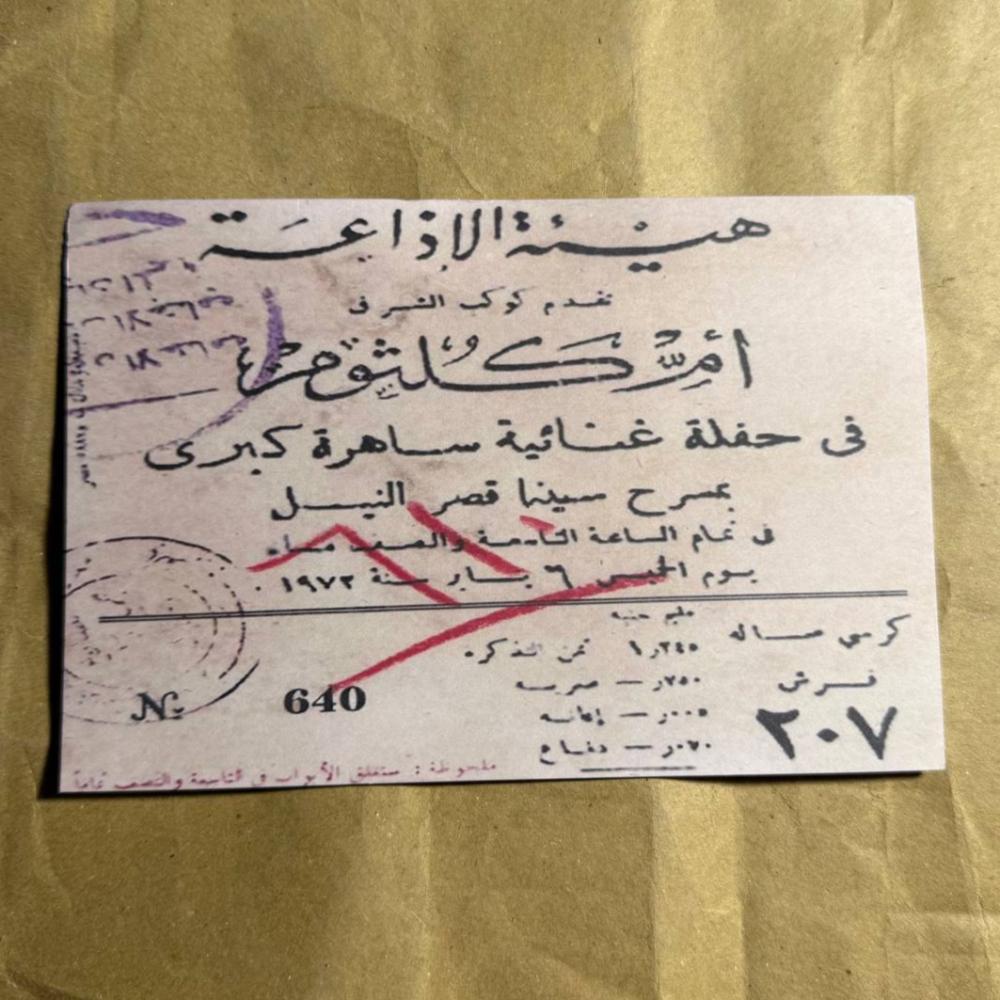 هيئة الاذاعة
تقدم كوكب الشرق
أم كلثوم
فى حفلة غنائية ساهرة كبرى
بمسرح سينما قصر النيل
فى تمام الساعة التاسعة والنصف مساء
يوم الخميس ٦ يناير سنة ١٩٧٢
كرسي صاله
قرش
٢٠٧
مليم جنيه
١٫٢٤٥ ثمن التذكره
٢٥٠ر— ضريبه
٠٠٥ر— إعانه
٠٧٠ر— دفاع
№ 640
ملحوظة : ستغلق الأبواب في التاسعة والنصف تماماً